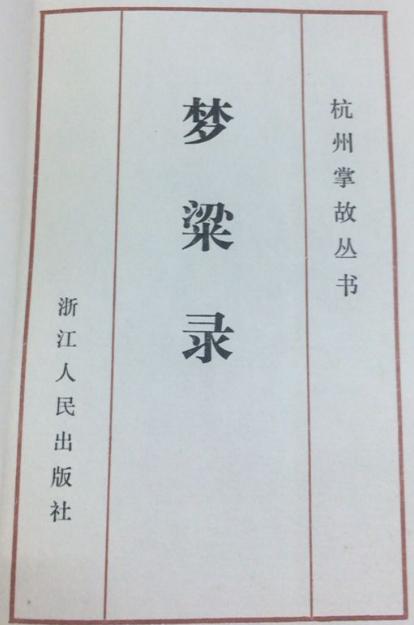 杭州掌故丛书
梦粱录
浙江人民出版社